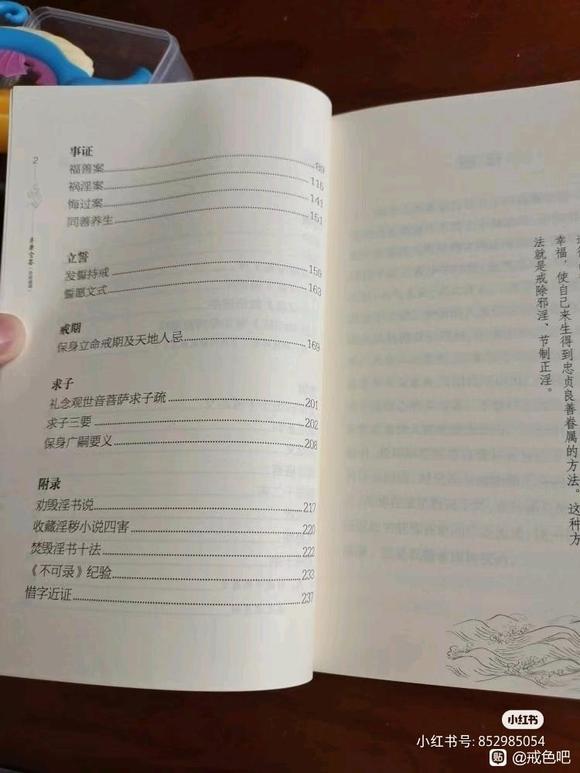 2
事证
福善案 89
祸淫案 116
悔过案 141
同善养生 151
立誓
发誓持戒 159
誓愿文式 163
戒期
保身立命戒期及天地人忌 169
求子
礼念观世音菩萨求子疏 201
求子三要 202
保身广嗣要义 208
附录
劝毁淫书说 217
收藏淫秽小说四害 220
焚毁淫书十法 222
《不可录》纪验 233
惜字近证 237
幸福，使自己来生得到忠贞良善眷属的方法。这种方
法就是戒除邪淫、节制正淫。
小红书
小红书号: 852985054
贴 @戒色吧